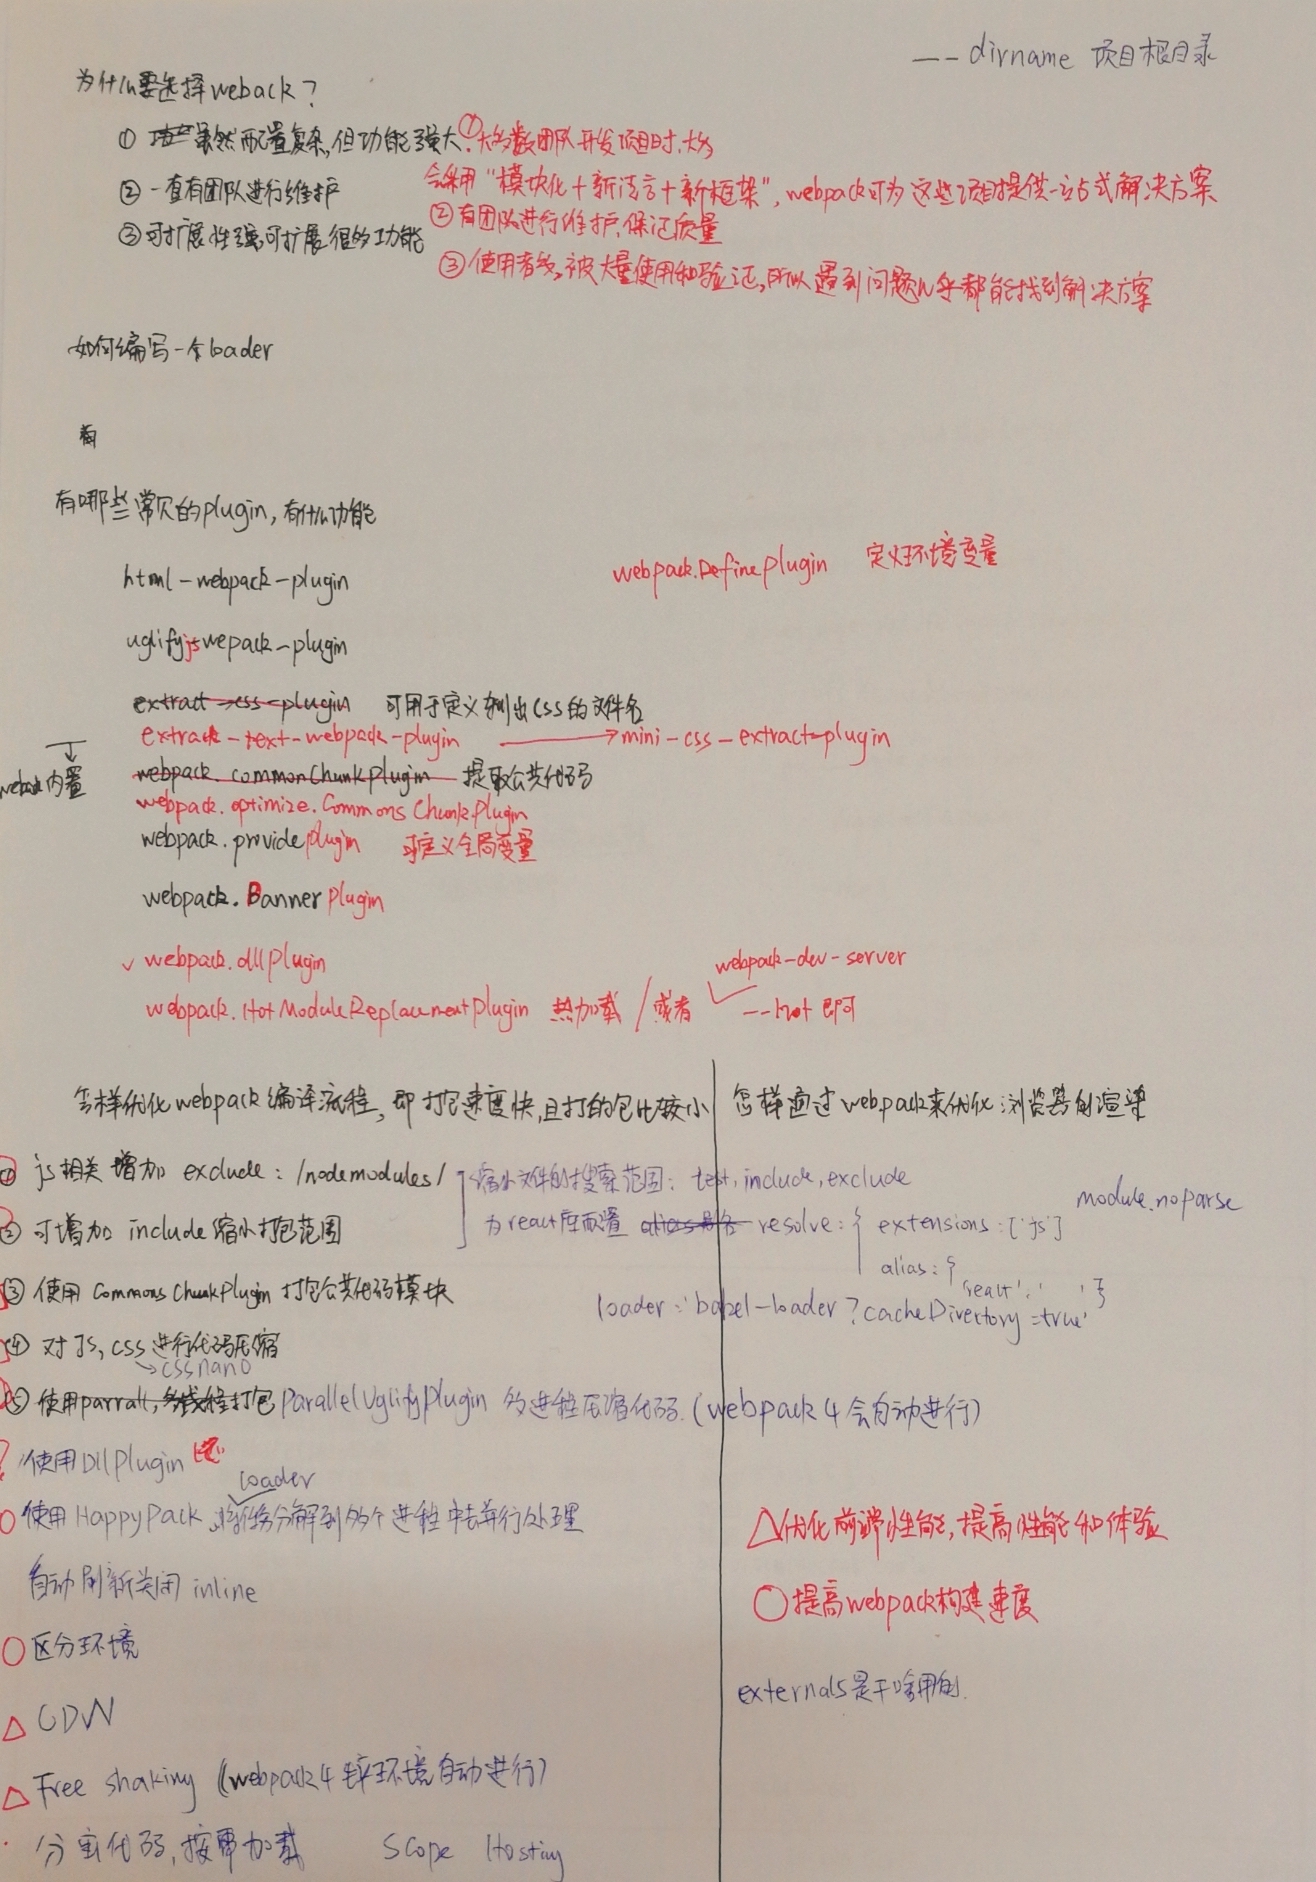 -- dirname 项目根目录
为什么要选择weback?
① 虽然配置复杂,但功能强大.
② 一直有团队进行维护
③ 可扩展性强,可扩展很多功能
①大多数团队开发项目时,大多
会采用“模块化+新语言+新框架”,webpack可为这些项目提供一站式解决方案
②有团队进行维护,保证质量
③使用者多,被大量使用和验证,所以遇到问题几乎都能找到解决方案
如何编写一个loader
有哪些常见的plugin,有什么功能
html-webpack-plugin
webpack.Defineplugin 定义环境变量
uglifyjswepack-plugin
extract-css-plugin 可用于定义抽出css的文件名
extrack-text-webpack-plugin → mini-css-extract-plugin
webpack内置
webpack.commonChunkplugin 提取公共代码
webpack.optimize.CommonsChunkPlugin
webpack.provideplugin 可定义全局变量
webpack.BannerPlugin
✓ webpack.dllPlugin
webpack.HotModuleReplacementPlugin 热加载 / 或者
webpack-dev-server
--hot 即可
怎样优化webpack编译流程,即打包速度快,且打的包比较小
怎样通过webpack来优化浏览器的渲染
① js相关增加 exclude: /nodemodules/
② 可增加 include 缩小打包范围
缩小文件的搜索范围: test, include, exclude
为react库配置 alias别名 resolve: { extensions: ['js']
alias: {
'react': ' ' }
module.noparse
③ 使用 CommonsChunkPlugin 打包公共代码模块
loader: 'babel-loader?cacheDirectory=true'
④ 对JS,CSS进行代码压缩
→cssnano
⑤ 使用parrall,多线程打包 ParallelUglifyPlugin 多进程压缩代码.(webpack4会自动进行)
使用DllPlugin
loader
○ 使用HappyPack,将任务分解到多个进程中去并行处理
自动刷新关闭 inline
○ 区分环境
△ CDN
△ Free shaking (webpack4 环境自动进行)
分割代码,按需加载 Scope Hosting
△优化前端性能,提高性能和体验
○提高webpack构建速度
externals是干啥用的.